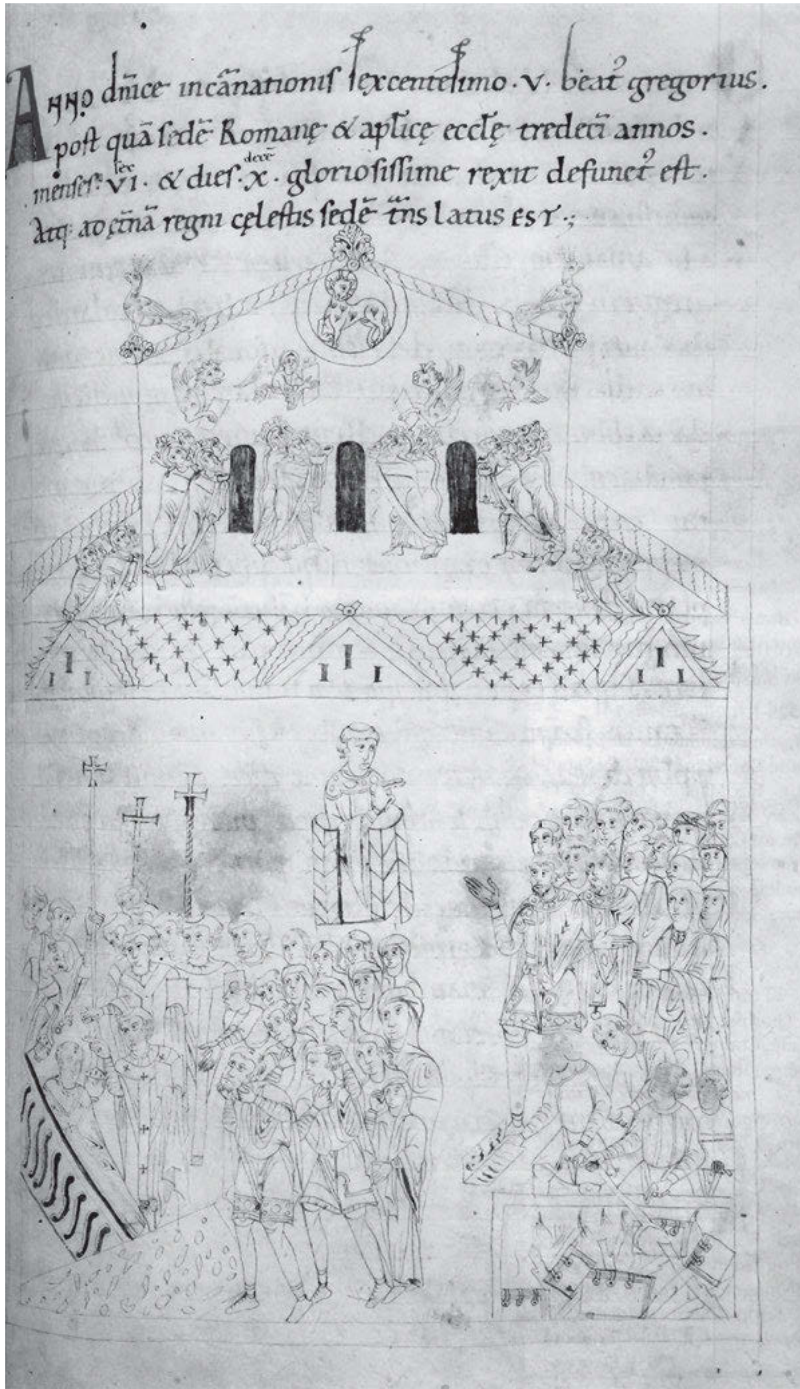 Anno dn̄ice incar̄nationis sexcentesimo · v · beat᷒ gregorius .
post quā sedē Romanę & ap̄licę eccłę tredecī annos .
menses · sex VI · & dies · decē X · gloriosissime rexit defunct᷒ est .
Atq; ad ęt̄nā regni cęlestis sedē tn̄s latus est ·;